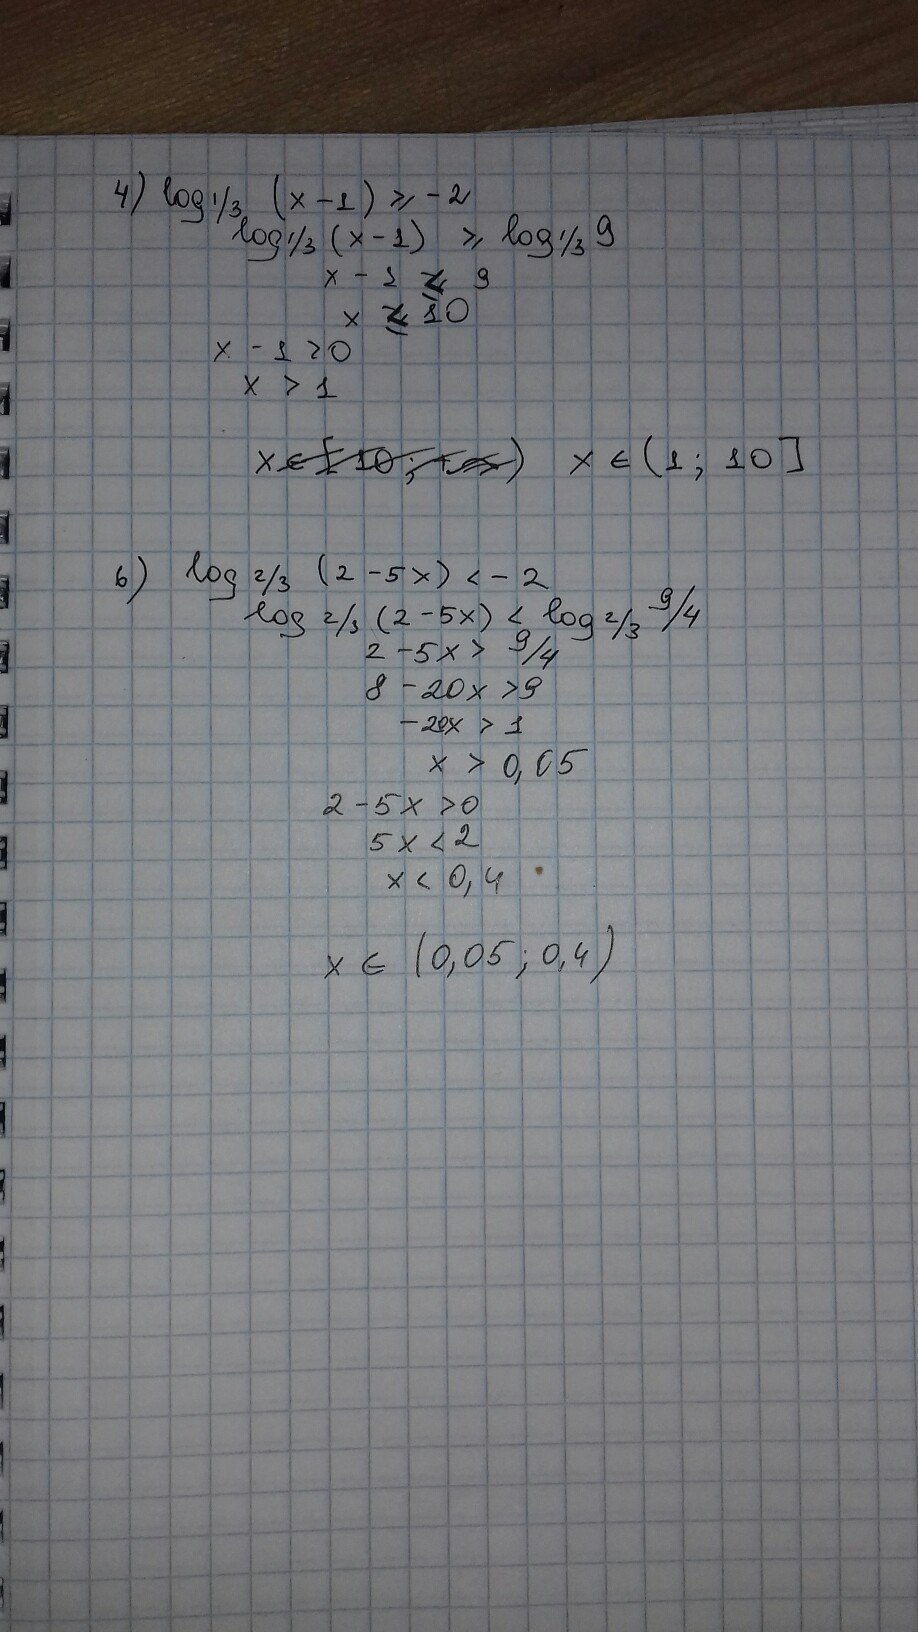 4) log 1/3 (x - 1) ⩾ -2
log 1/3 (x - 1) ⩾ log 1/3 9
x - 1 ⩽ 9
x ⩽ 10
x - 1 > 0
x > 1
x ∈ [10; +∞) x ∈ (1; 10]
6) log 2/3 (2 - 5x) < -2
log 2/3 (2 - 5x) < log 2/3 9/4
2 - 5x > 9/4
8 - 20x > 9
-20x > 1
x > 0,05
2 - 5x > 0
5x < 2
x < 0,4
x ∈ (0,05; 0,4)